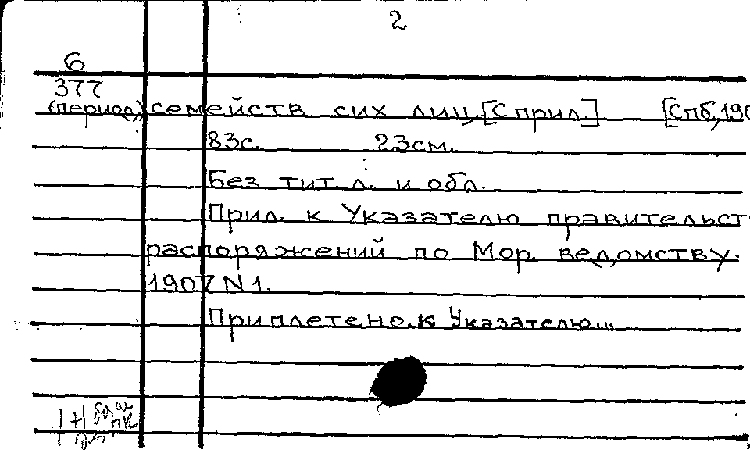 2
6
377
(период.) семейств сих лиц. [С прил.] [Спб, 190
83с. 23см.
Без тит. л. и обл.
Прил. к Указателю правительст
распоряжений по Мор. ведомству.
1907 N 1.
Приплетено к Указателю...